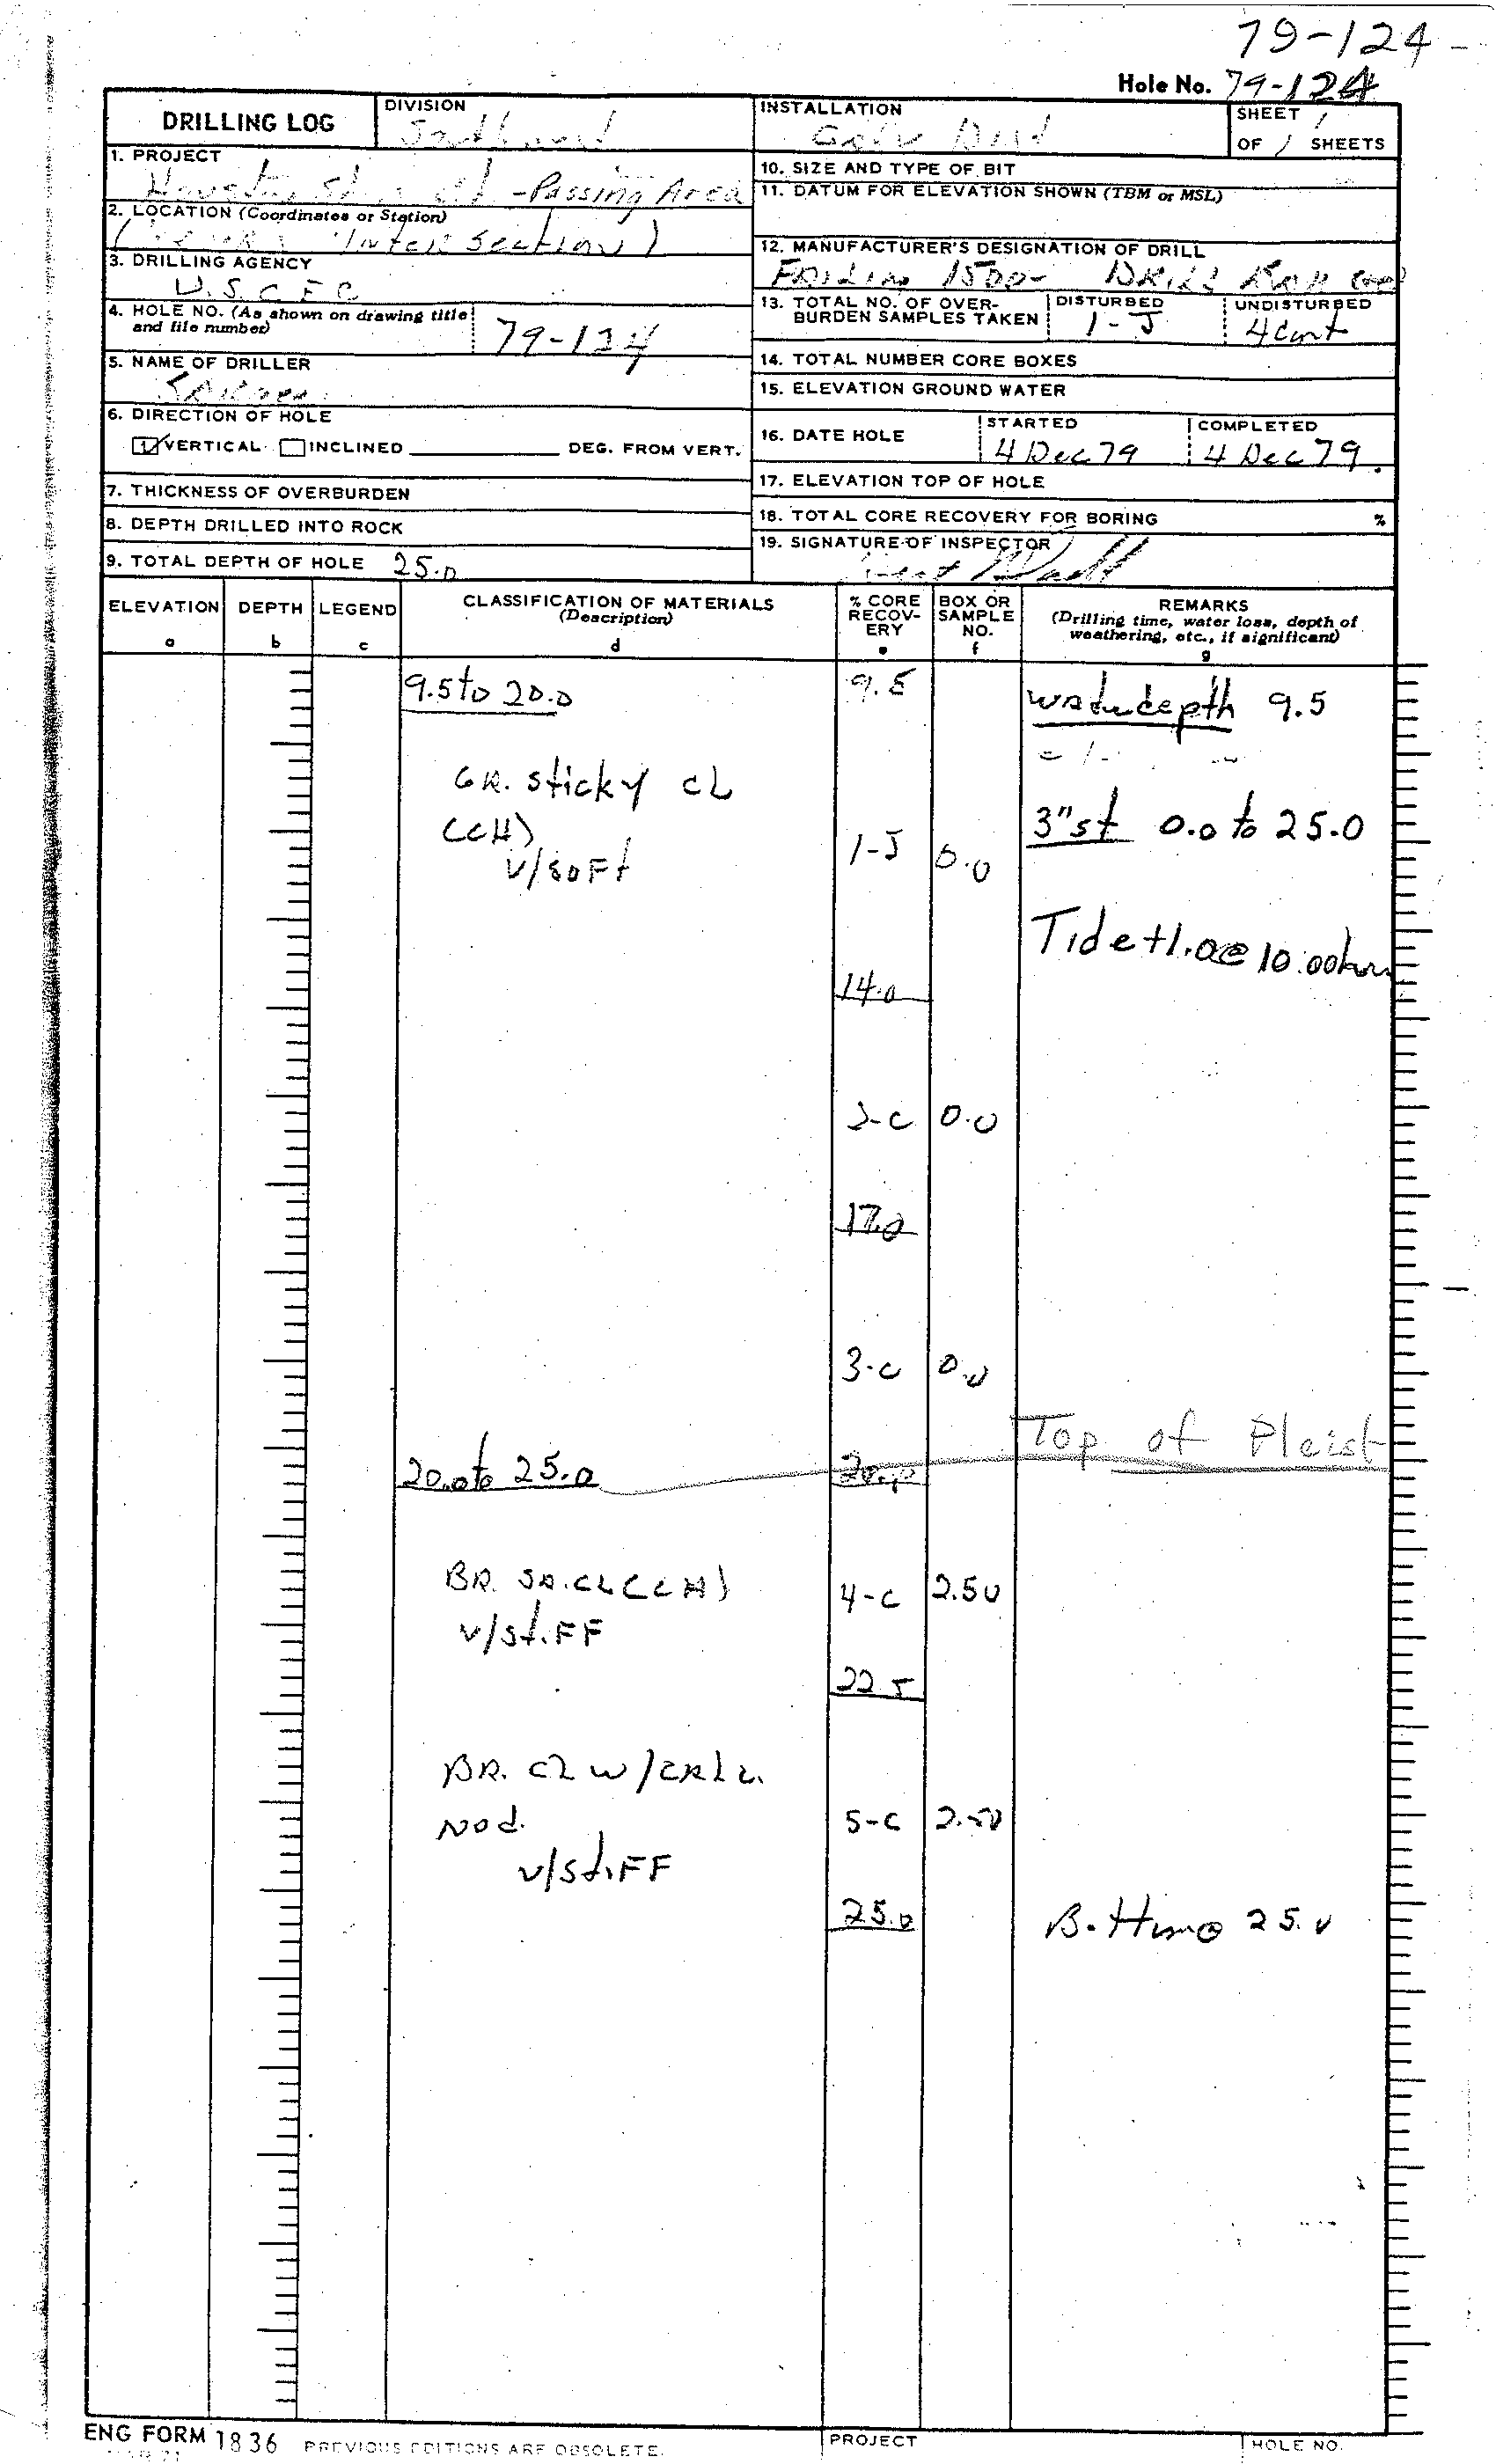 79-124
Hole No. 79-124
DRILLING LOG
DIVISION
INSTALLATION
SHEET 1
OF 1 SHEETS
1. PROJECT
-Passing Area
2. LOCATION (Coordinates or Station)
Intersection)
3. DRILLING AGENCY
U.S.C.E.C
4. HOLE NO. (As shown on drawing title
and file number)
79-124
5. NAME OF DRILLER
6. DIRECTION OF HOLE
VERTICAL INCLINED DEG. FROM VERT.
7. THICKNESS OF OVERBURDEN
8. DEPTH DRILLED INTO ROCK
9. TOTAL DEPTH OF HOLE 25.0
10. SIZE AND TYPE OF BIT
11. DATUM FOR ELEVATION SHOWN (TBM or MSL)
12. MANUFACTURER'S DESIGNATION OF DRILL
1500-
13. TOTAL NO. OF OVER-
BURDEN SAMPLES TAKEN
DISTURBED
1-J
UNDISTURBED
4 Cont
14. TOTAL NUMBER CORE BOXES
15. ELEVATION GROUND WATER
16. DATE HOLE
STARTED
4 Dec 79
COMPLETED
4 Dec 79.
17. ELEVATION TOP OF HOLE
18. TOTAL CORE RECOVERY FOR BORING %
19. SIGNATURE OF INSPECTOR
ELEVATION
a
DEPTH
b
LEGEND
c
CLASSIFICATION OF MATERIALS
(Description)
d
% CORE
RECOV-
ERY
e
BOX OR
SAMPLE
NO.
f
REMARKS
(Drilling time, water loss, depth of
weathering, etc., if significant)
g
9.5 to 20.0
9.5
water depth 9.5
GR. sticky CL
(CH)
v/soft
3" st 0.0 to 25.0
1-J 0.0
Tide +1.0@ 10:00 hrs
14.0
2-C 0.0
17.0
3-C 0.0
Top of Pleist
20.0 to 25.0
20.0
BR. SA. CL (CH)
v/stiff
4-C 2.50
22.5
BR. CL w/calc.
Nod.
v/stiff
5-C 2.50
25.0
Bottm@ 25.0
ENG FORM 1836 PREVIOUS EDITIONS ARE OBSOLETE.
PROJECT
HOLE NO.